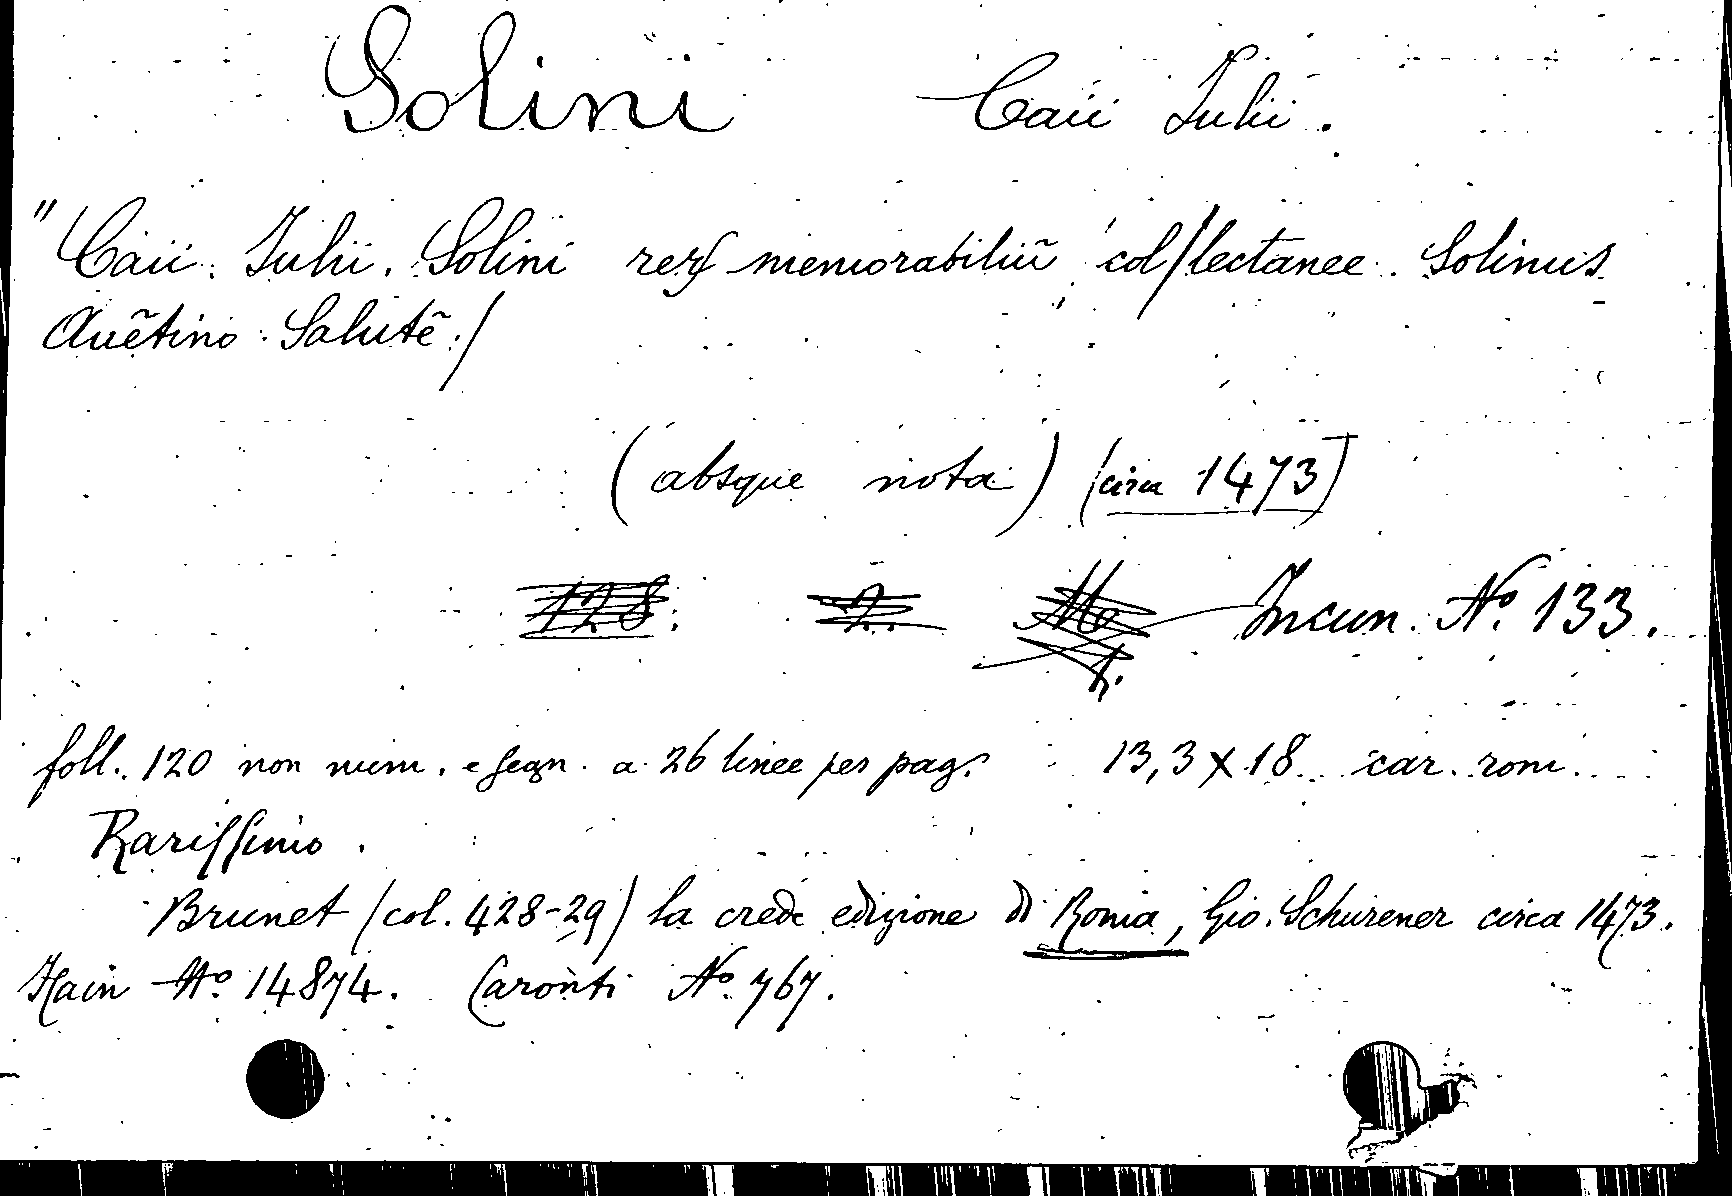 Solini Caii Iulii.
"Caii. Iulii. Solini reꝝ memorabiliũ col/lectanee. Solinus
Auẽtino. Salutẽ./
(absque nota) [circa 1473]
128. 2. Incun. Nº 133.
foll. 120 non num. e segn. a 26 linee per pag. 13,3 x 18 car. rom.
Rarissimo.
Brunet (col. 428-29) la crede edizione di Roma, Gio. Schurener circa 1473.
Hain Nº 14874. Caronti Nº 767.